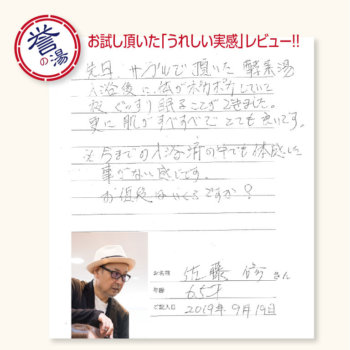 誉の湯
お試し頂いた「うれしい実感」レビュー!!
先日、サンプルで頂いた酵素湯
入浴後に体がポカポカしていた
為、ぐっすり眠ることができました。
更に肌がすべすべでとても良いです。
※今までの入浴剤の中でも体感した
事がない感じです。
お値段はいくらですか?
お名前 佐藤 さん
年齢 65才
ご記入日 2019年9月19日